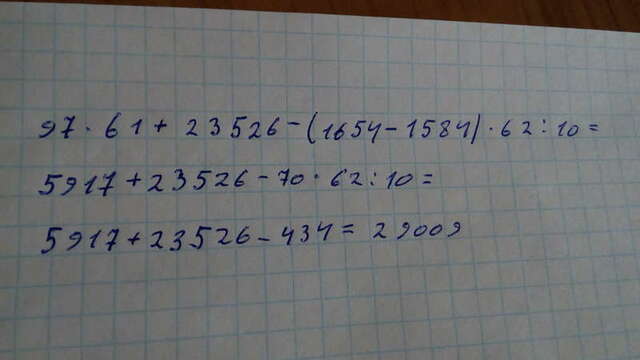 97 · 61 + 23526 - (1654 - 1584) · 62 : 10 =
5917 + 23526 - 70 · 62 : 10 =
5917 + 23526 - 434 = 29009